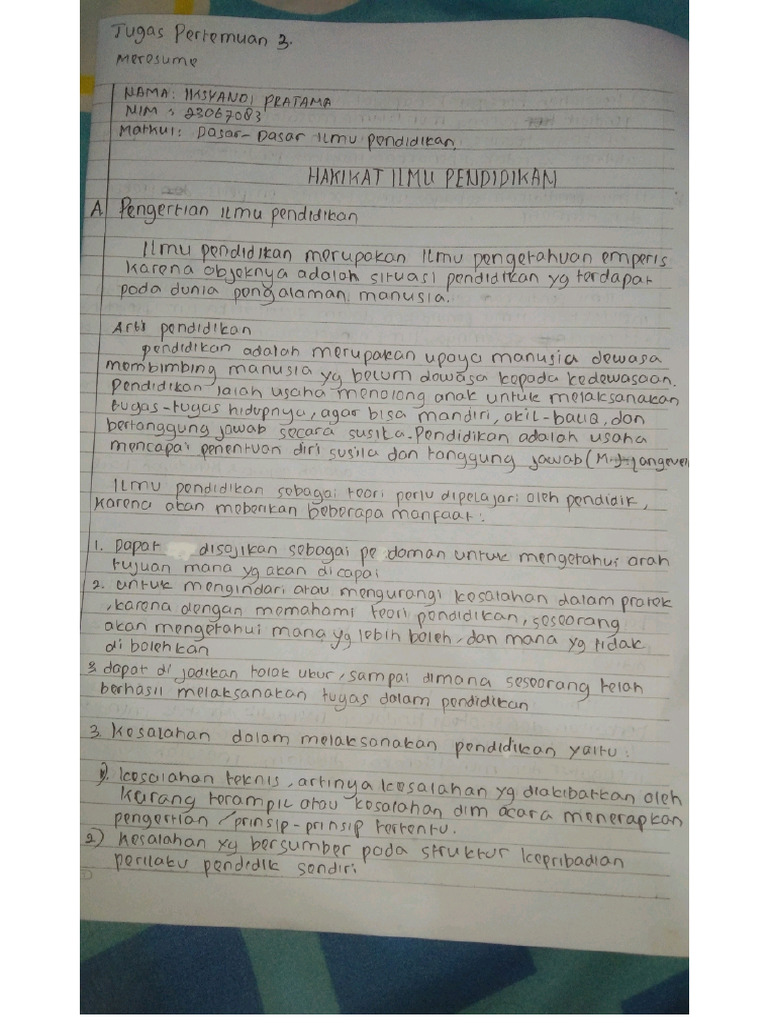 Tugas Pertemuan 3.
Meresume
NAMA: IIKSYANDI PRATAMA
NIM : 23067083
Matkul: Dasar-Dasar Ilmu pendidikan.
HAKIKAT ILMU PENDIDIKAN
A Pengertian ilmu pendidikan
Ilmu pendidikan merupakan ilmu pengetahuan emperis
karena objeknya adalah situasi pendidikan yg terdapat
pada dunia pengalaman manusia.
Arti pendidikan
pendidikan adalah merupakan upaya manusia dewasa
membimbing manusia yg belum dewasa kepada kedewasaan.
pendidikan ialah usaha menolong anak untuk melaksanakan
tugas-tugas hidupnya, agar bisa mandiri, akil-baliq, dan
bertanggung jawab secara susila. Pendidikan adalah usaha
mencapai penentuan diri susila dan tanggung jawab (M.J.langeve
Ilmu pendidikan sebagai teori perlu dipelajari oleh pendidik,
karena akan meberikan beberapa manfaat :
1. Dapat disajikan sebagai pe doman untuk mengetahui arah
tujuan mana yg akan dicapai
2. untuk mengindari atau mengurangi kesalahan dalam pratek
, karena dengan memahami teori pendidikan, seseorang
akan mengetahui mana yg lebih boleh, dan mana yg tidak
di bolehkan
3. dapat di jadikan tolak ukur, sampai dimana seseorang telah
berhasil melaksanakan tugas dalam pendidikan
3. kesalahan dalam melaksanakan pendidikan yaitu :
1). kesalahan teknis, artinya kesalahan yg diakibatkan oleh
kurang terampil atau kesalahan dlm acara menerapkan
pengertian / prinsip-prinsip tertentu.
2) kesalahan yg bersumber pada struktur kepribadian
perilaku pendidik sendiri